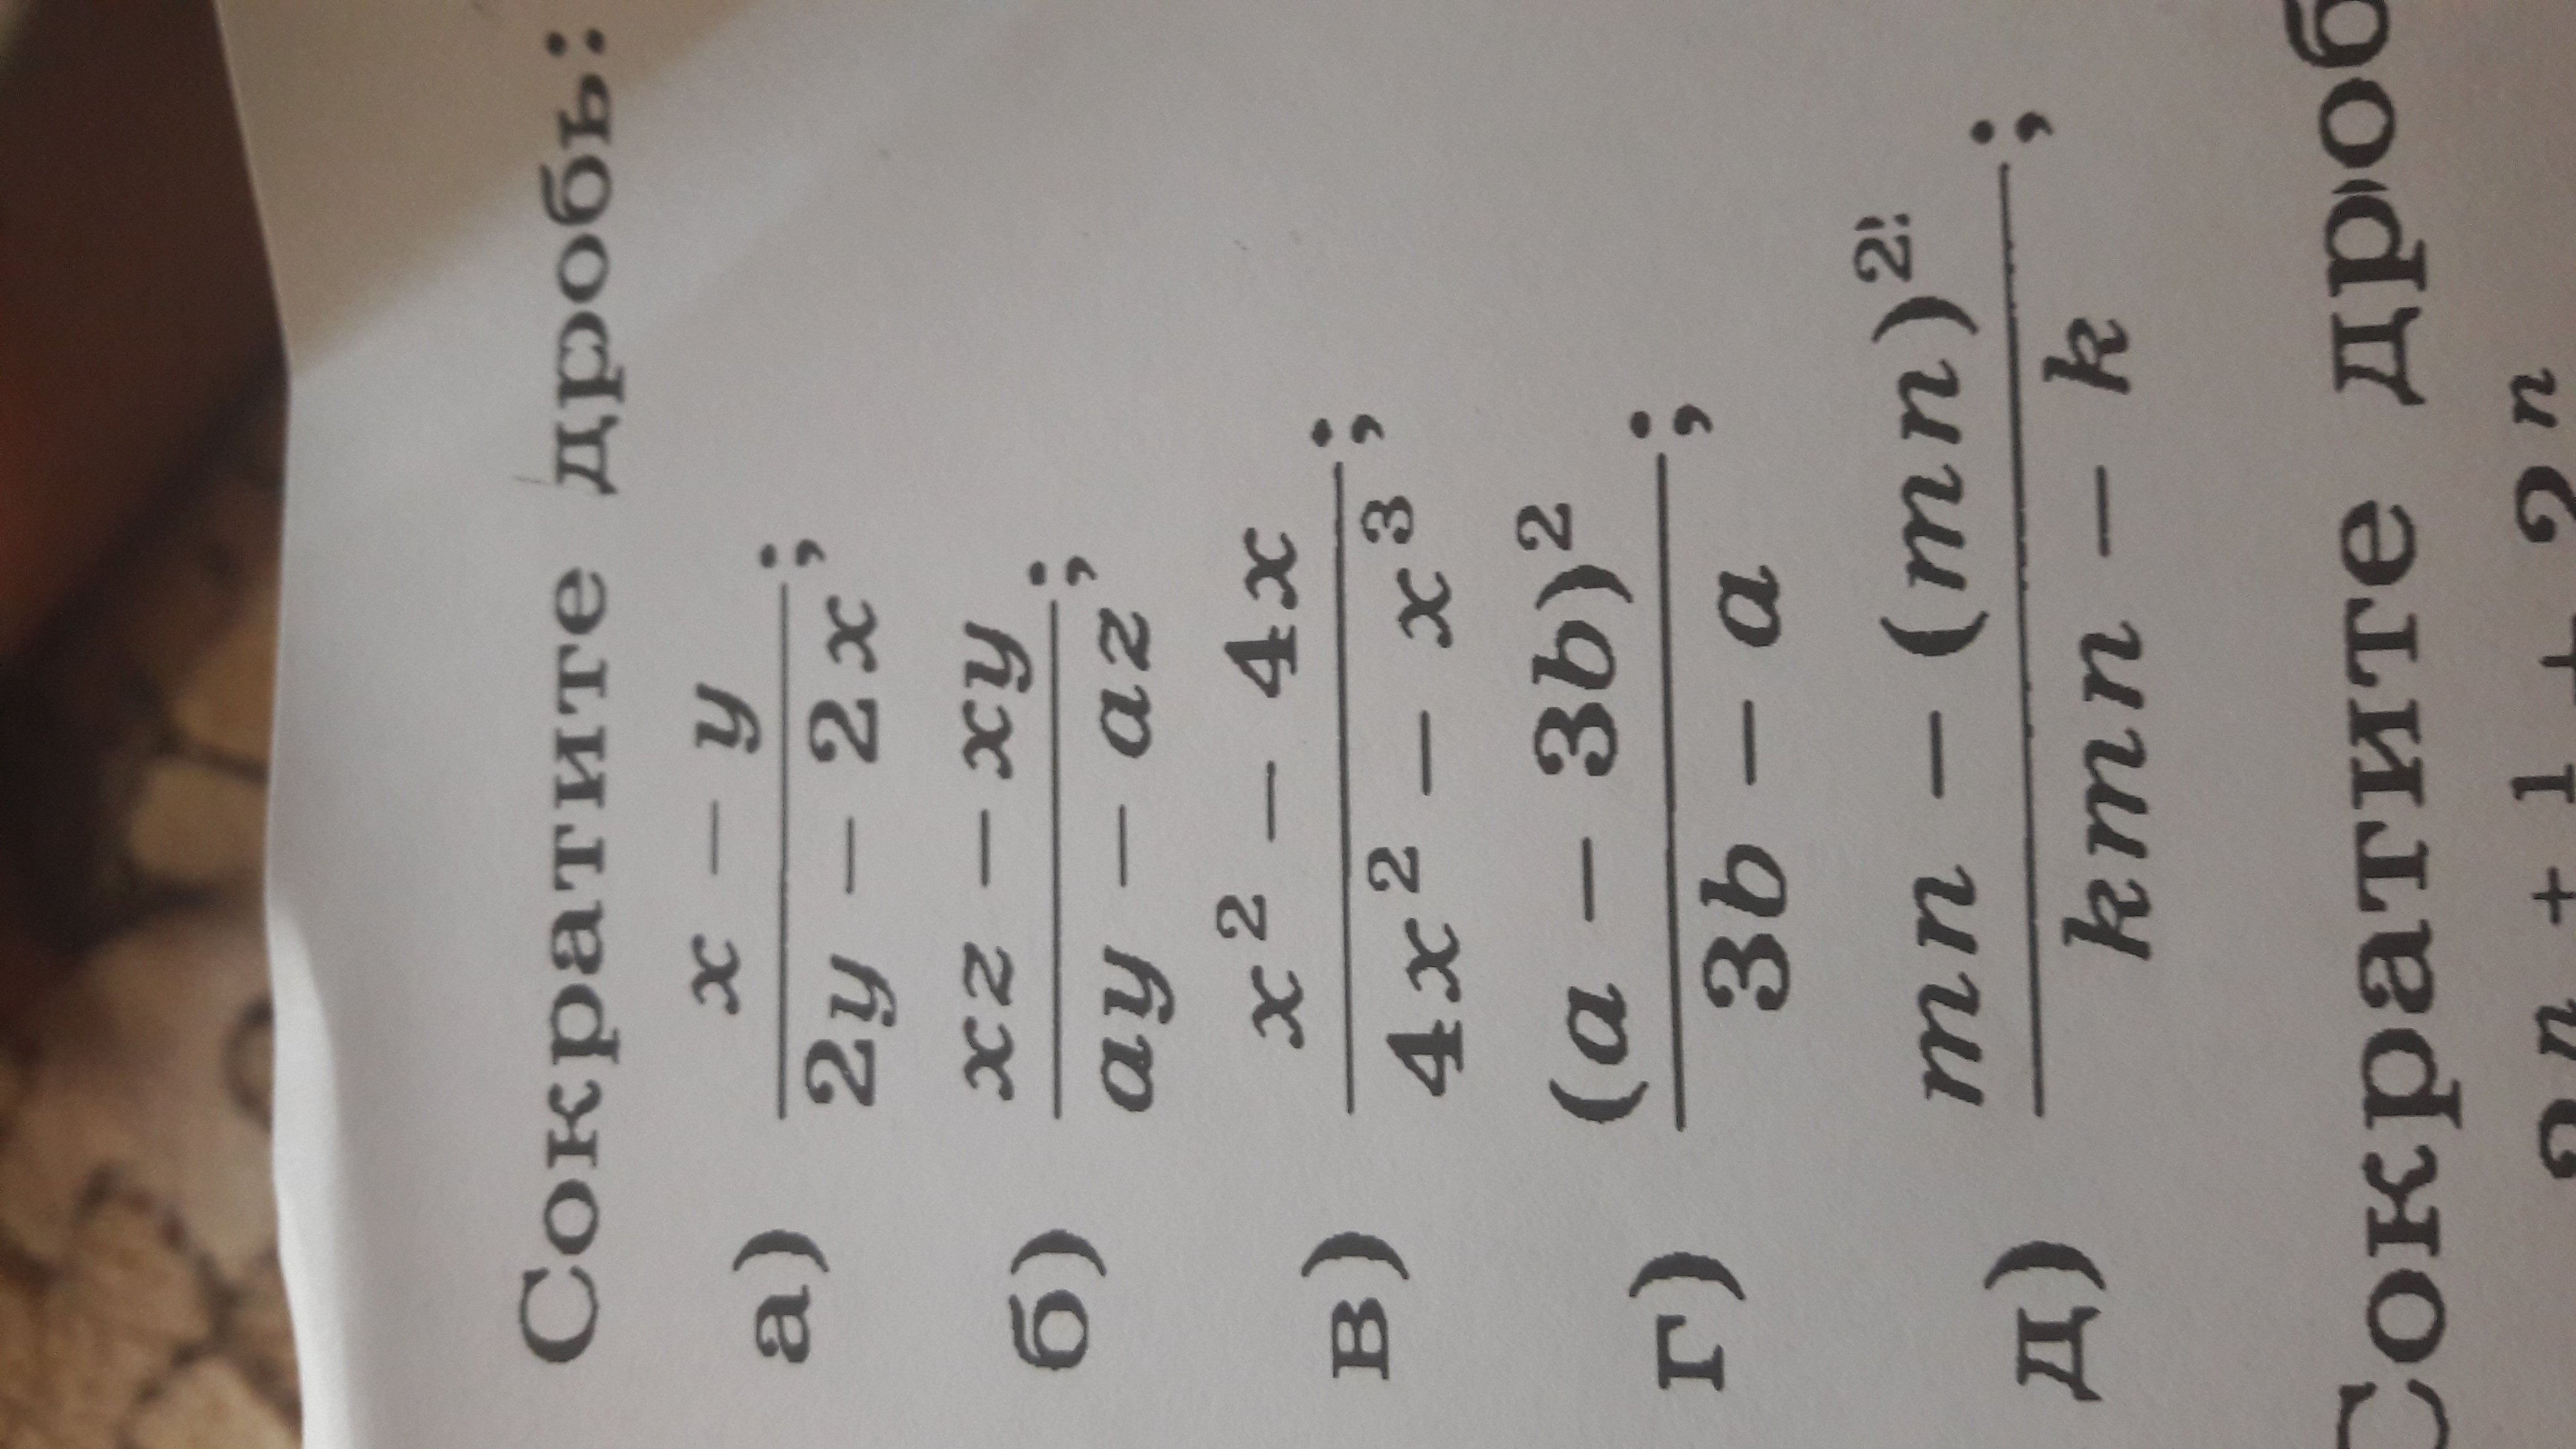 Сократите дробь:
а) \frac{x - y}{2y - 2x};
б) \frac{xz - xy}{ay - az};
в) \frac{x^2 - 4x}{4x^2 - x^3};
г) \frac{(a - 3b)^2}{3b - a};
д) \frac{mn - (mn)^2}{kmn - k};
Сократите дроб
n + 1 + 2n